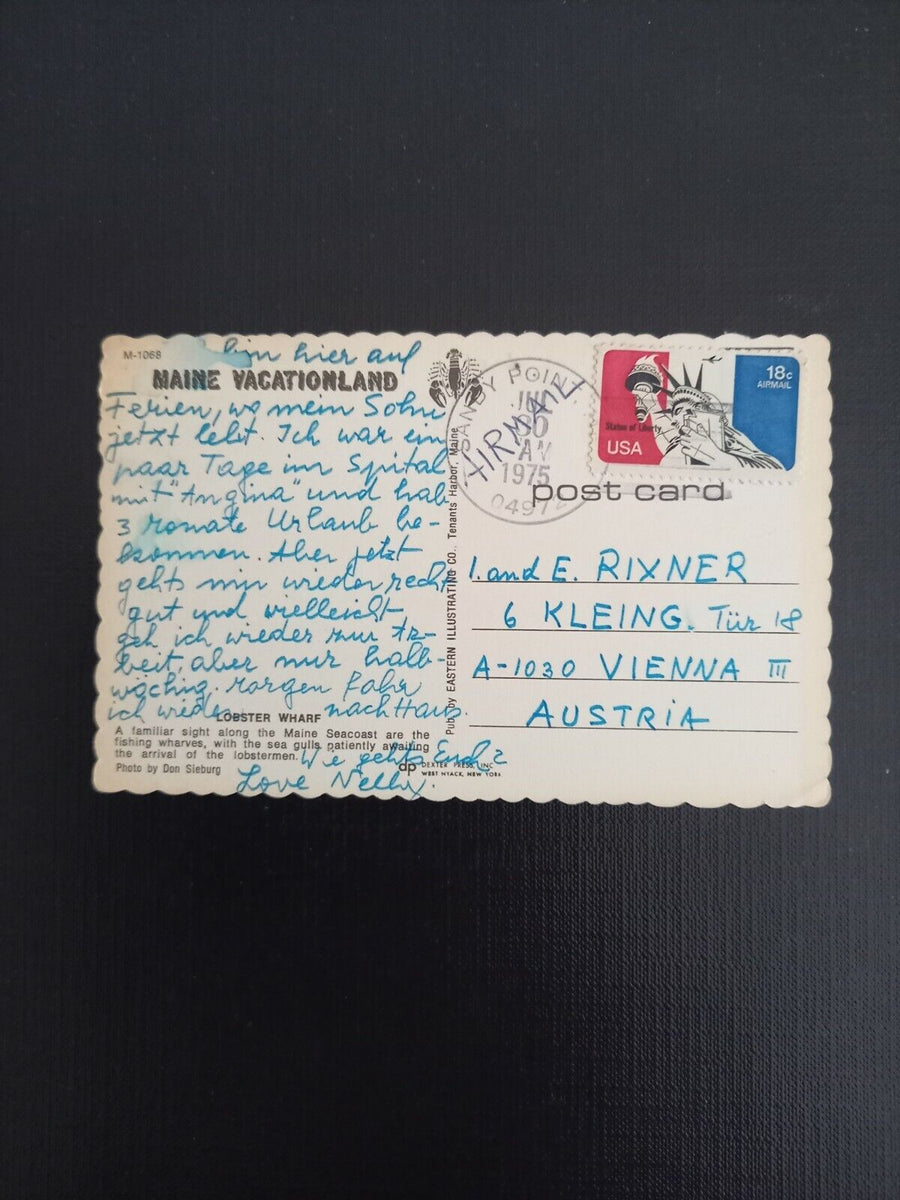 M-1068
bin hier auf
MAINE VACATIONLAND
Ferien, wo mein Sohn
jetzt lebt. Ich war ein
paar Tage im Spital
mit "Angina" und hab
3 Monate Urlaub be-
kommen. Aber jetzt
gehts mir wieder recht
gut und vielleicht
geh ich wieder zur Ar-
beit, aber nur halb-
wöchig. Morgen fahr
ich wieder nach Haus.
LOBSTER WHARF
A familiar sight along the Maine Seacoast are the
fishing wharves, with the sea gulls patiently awaiting
the arrival of the lobstermen.
Photo by Don Sieburg
Wie gehts Euch?
Love Nelly.
Pub. by EASTERN ILLUSTRATING CO., Tenants Harbor, Maine
dp DEXTER PRESS, INC.
WEST NYACK, NEW YORK
SANDY POINT
JUL
AM
1975
AIRMAIL
18c
AIRMAIL
Statue of Liberty
USA
post card
I. and E. RIXNER
6 KLEING. Tür 18
A-1030 VIENNA III
AUSTRIA